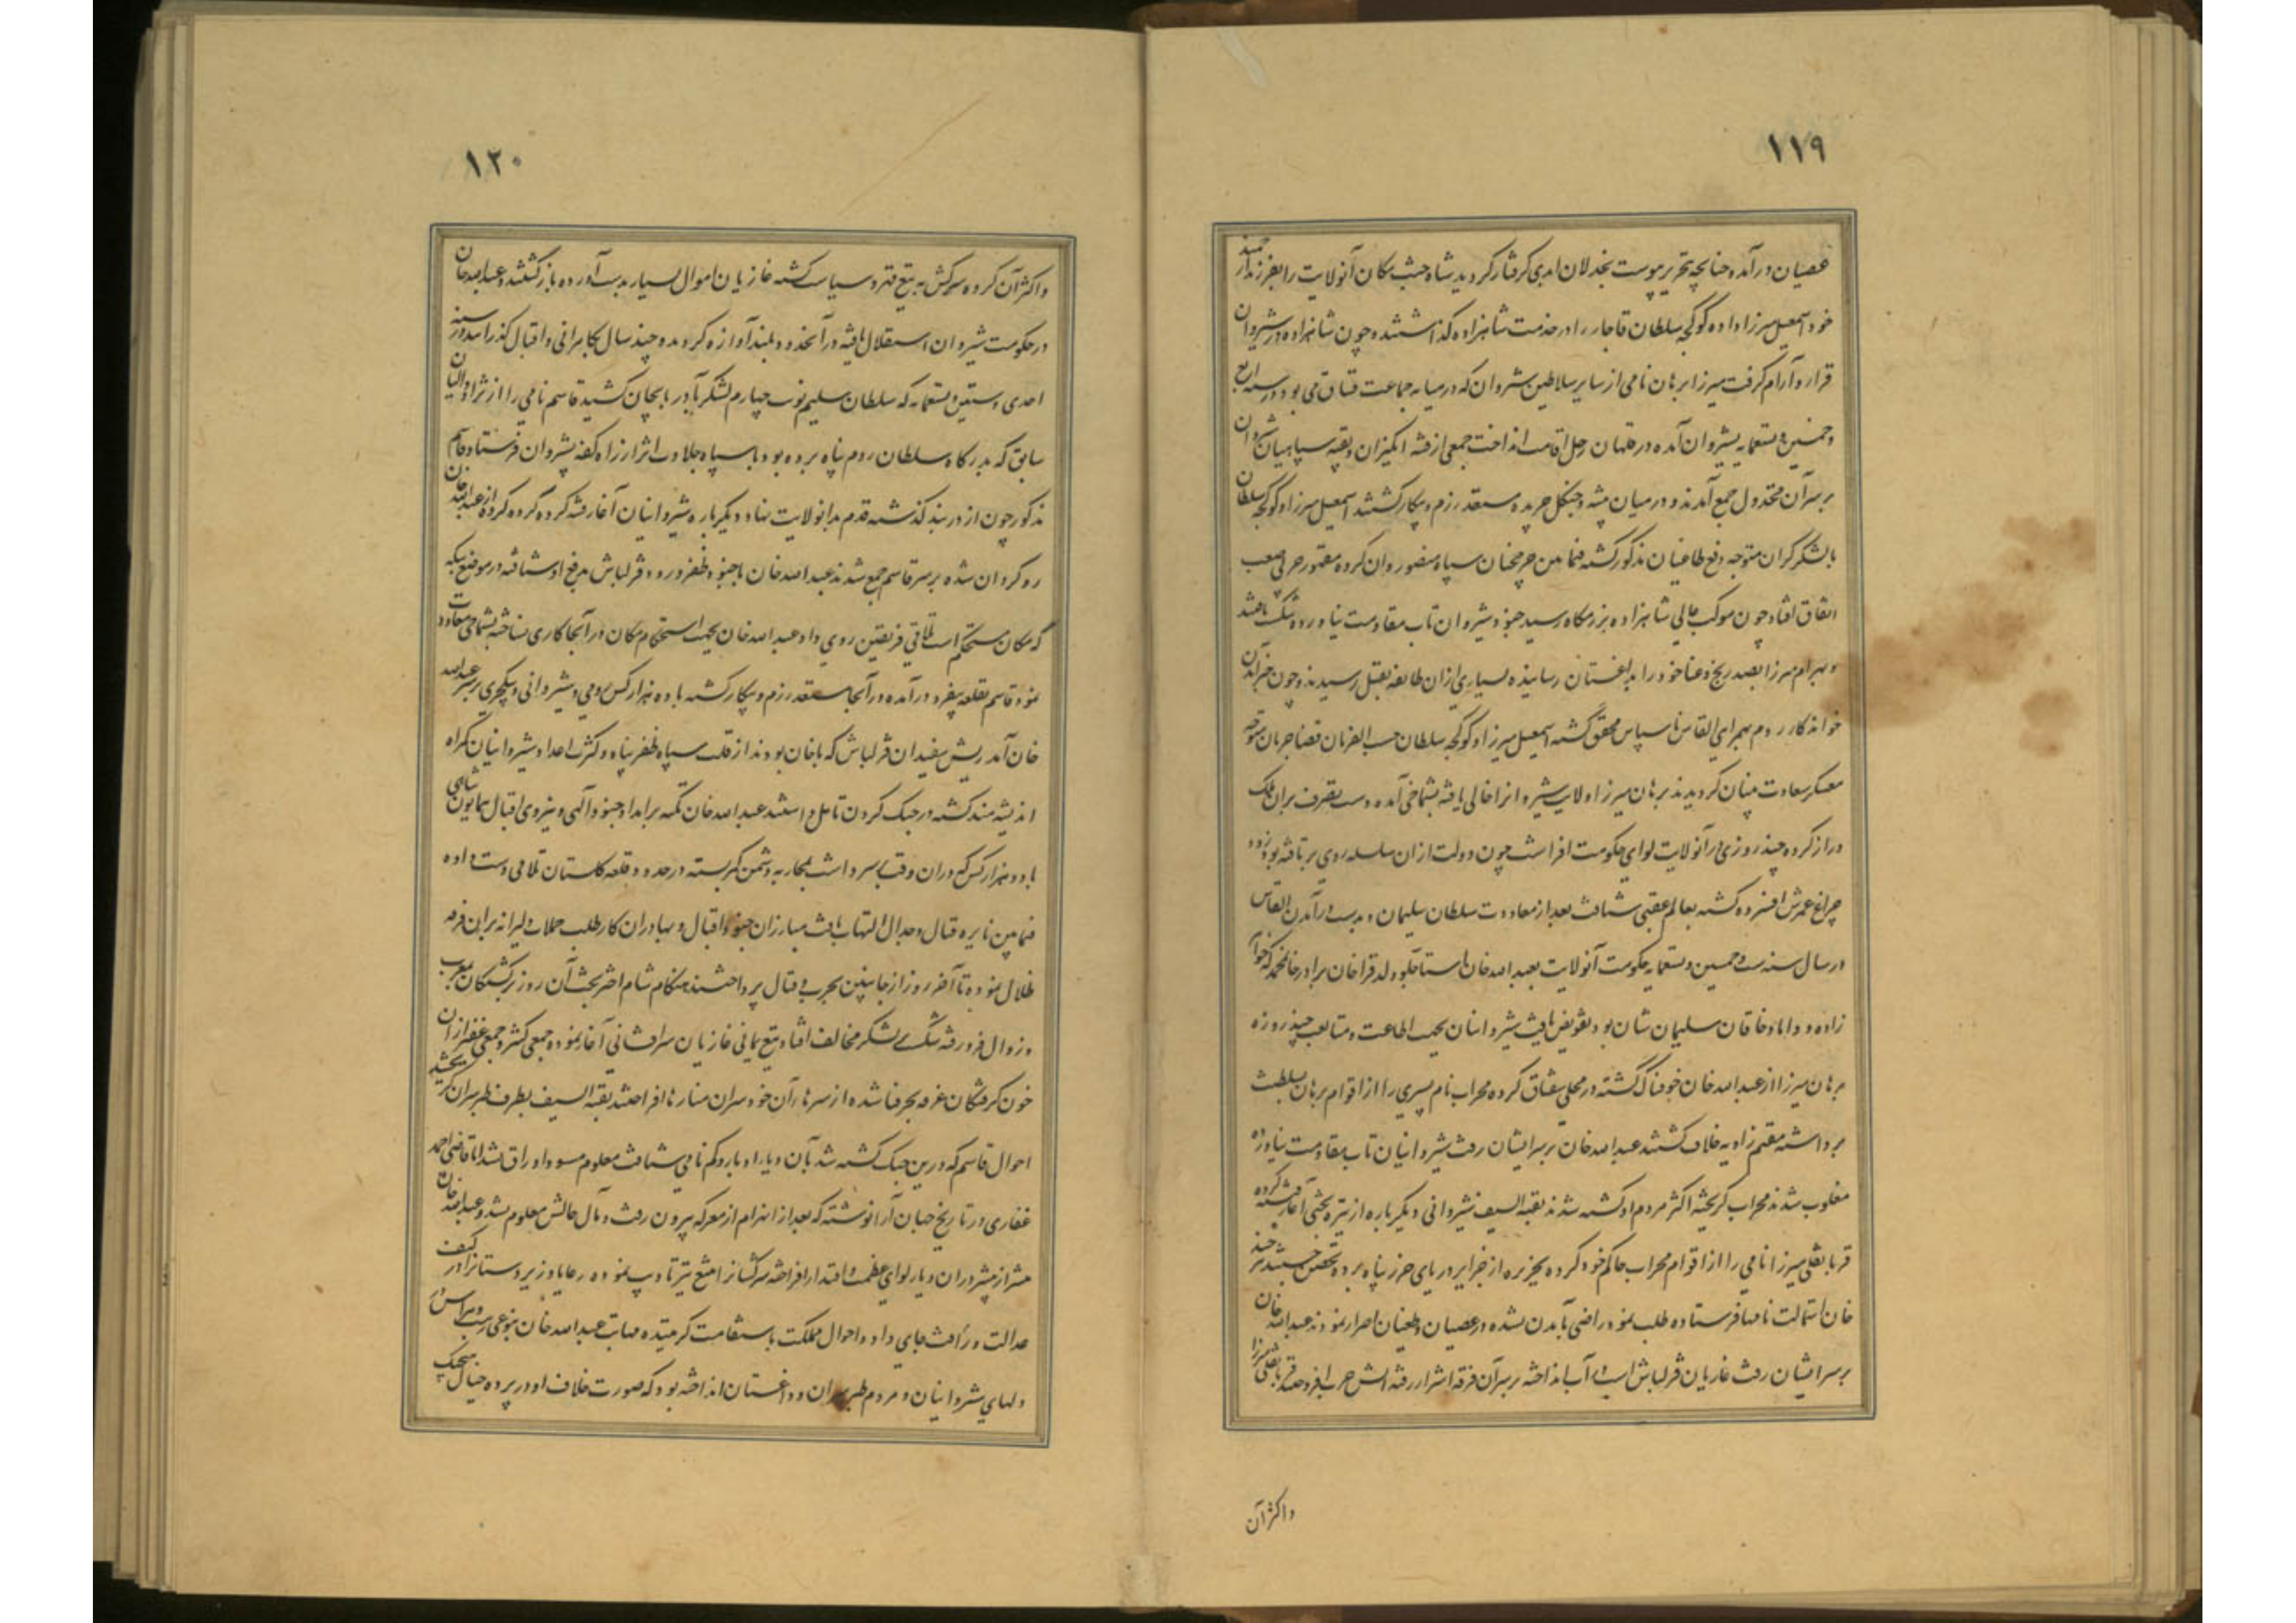 ١١٩
عصیان درآمده چنانچه تحریر پیوست بخذلان ابدی گرفتار گردید شاه جنت مکان آنولایت را بفرزند ارجمند
خود اسمعیل میرزا داده کوکجه سلطان قاجار را در خدمت شاهزاده گذاشتند چون شاهزاده در شیروان
قرار و آرام گرفت میرزا برهان نامی از سایر سلاطین شروان که در میانه جماعت قیتاق می بود در سنه اربع
و خمسین و تسعمایه بشیروان آمده در قلهان رحل اقامت انداخت جمعی از فتنه انگیزان و بقیه سپاهیان شروان
بر سر آن مخذول جمع آمدند و در میان بیشه و جنگل خزیده مستعد رزم و پیکار گشتند اسمعیل میرزا و کوکجه سلطان
با لشکر گران متوجه دفع طاغیان مذکور گشته فیما بین چرخچیان سپاه منصور و آن گروه مقهور حربی صعب
اتفاق افتاد چون موکب عالی شاهزاده برزمگاه رسید جنود شیروان تاب مقاومت نیاورده شکست یافتند
و بهرام میرزا بصد رنج و عنا خود را بداغستان رسانیده بسیاری از آن طایفه بقتل رسیدند و چون خبر آمدن
خواندکار روم بهمراهی القاس ناسپاس محقق گشته اسمعیل میرزا و کوکجه سلطان حسب الفرمان قضا جریان متوجه
معسکر سعادت بنیان گردیدند برهان میرزا ولایت شیروانرا خالی یافته بشماخی آمده دست تصرف بران ملک
دراز کرده چند روزی در آنولایت لوای حکومت افراشت چون دولت از ان سلسله روی برتافته بود زود
چراغ عمرش افسرده گشته بعالم عقبی شتافت بعد از معاودت سلطان سلیمان و بدست درآمدن القاس
در سال سنه ست و خمسین و تسعمایه حکومت آنولایت بعبدالله خان استاجلو ولد قراخان برادر خانمحمد که خواهر
زاده و داماد خاقان سلیمان شان بود تفویض یافت شیروانیان بجهت اطاعت و متابعت چند روزه
برهان میرزا از عبدالله خان خوفناک گشته در محلی سقناق کرده محراب نام پسری را از اقوام برهان بسلطنت
برداشته مقیم زاویه خلاف گشتند عبدالله خان بر سر ایشان رفت شیروانیان تاب مقاومت نیاورده
مغلوب شدند محراب گریخته اکثر مردم او کشته شدند بقیة السیف شیروانی دیگر باره از تیره بختی آغاز فتنه کرده
قربانعلی میرزا نامی را از اقوام محراب حاکم خود کرده بجزیره از جزایر دریای خزر پناه برده تحصن جستند هر چند
خان استمالت نامها فرستاده طلب نمود راضی بآمدن نشده در عصیان و طغیان اصرار نمودند عبدالله خان
بر سر ایشان رفت غازیان قزلباش اسب در آب انداخته بر سر آن فرقه اشرار رفته آتش حرب افروختند قربانعلی میرزا
واکثر آن
١٢٠
واکثر آن گروه سرکش به تیغ قهر و سیاست کشته غازیان اموال بسیار بدست آورده بازگشتند و عبدالله خان
در حکومت شیروان استقلال یافته در آنحدود بلند آوازه گردید و چند سال بکامرانی و اقبال گذرانید در سنه
احدی و ستین و تسعمایه که سلطان سلیم نوبت چهارم لشکر بآذربایجان کشید قاسم نامی را از نژاد والیان
سابق که بدرگاه سلطان روم پناه برده بود با سپاه جلادت اثر از راه کفه بشروان فرستاد قاسم
مذکور چون از دربند گذشته قدم بدانولایت نهاد دیگر باره شیروانیان آغاز فتنه کرده گروه گروه از عبدالله خان
روگردان شده بر سر قاسم جمع شدند عبدالله خان با جنود ظفر ورود قزلباش بدفع او شتافته در موضع تیکه
که مکان مستحکم است تلاقی فریقین روی داد عبدالله خان بجهت استحکام مکان در آنجا کاری نساخته بشماخی معاودت
نمود قاسم بقلعه بیغرد درآمده در آنجا مستعد رزم و پیکار گشته با ده هزار کس رومی و شیروانی و ینکچری بر سر عبدالله
خان آمد ریش سفیدان قزلباش که با خان بودند از قلت سپاه ظفر پناه و کثرت اعدا و شیروانیان گمراه
اندیشه مند گشته در جنگ کردن تامل داشتند عبدالله خان تکیه بر امداد جنود آلهی و نیروی اقبال همایون شاهی
با دو هزار کس که در ان وقت بر سر داشت بمحاربه دشمن کمر بسته در حدود قلعه گلستان تلاقی دست داده
فیما بین نایره قتال و جدال التهاب یافت مبارزان جنود اقبال و بهادران کار طلب حملات دلیرانه بر این فرقه
ضلال نموده تا آخر روز از جانبین بحرب و قتال پرداختند هنگام شام اختر بخت آن روز برگشتگان بمغرب
و زوال فرو رفته شکست بلشکر مخالف افتاد تیغ یمانی غازیان سرافشانی آغاز نموده جمعی کثیر و جمعی غفیر از ان
خون گرفتگان غرقه بحر فنا شده از سرهای آن خودسران منارها افراختند بقیة السیف بطرف طبرسران گریختند
احوال قاسم که درین جنگ کشته شد یا بآن دیار ادبار و کم نامی شتافت معلوم مسود اوراق نشد اما قاضی احمد
غفاری در تاریخ جهان آرا نوشته که بعد از انهزام از معرکه بیرون رفت و مآل حالش معلوم نشد و عبدالله خان
بیشتر از پیشتر در ان دیار لوای عظمت و اقتدار افراخته سرکشانرا بتیغ تیز تادیب نموده رعایا و زیردستانرا در کنف
عدالت و رأفت جای داد و احوال مملکت باستقامت گرائیده مهابت عبدالله خان بنوعی رسید و هراس در
دلهای شروانیان و مردم طبرسران و داغستان انداخته بود که صورت خلاف او در پرده خیال هیچیک